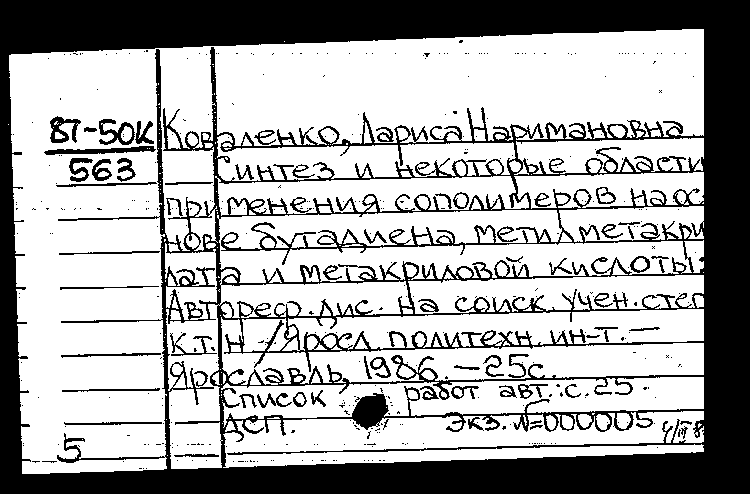 87-50К Коваленко, Лариса Наримановна
563 Синтез и некоторые области
применения сополимеров на ос
нове бутадиена, метилметакри
лата и метакриловой кислоты:
Автореф. дис. на соиск. учен. степ
к.т.н / Яросл политехн. ин-т. —
Ярославль, 1986. — 25с.
Список работ авт.: с. 25.
ДСП. Экз. №=000005
5